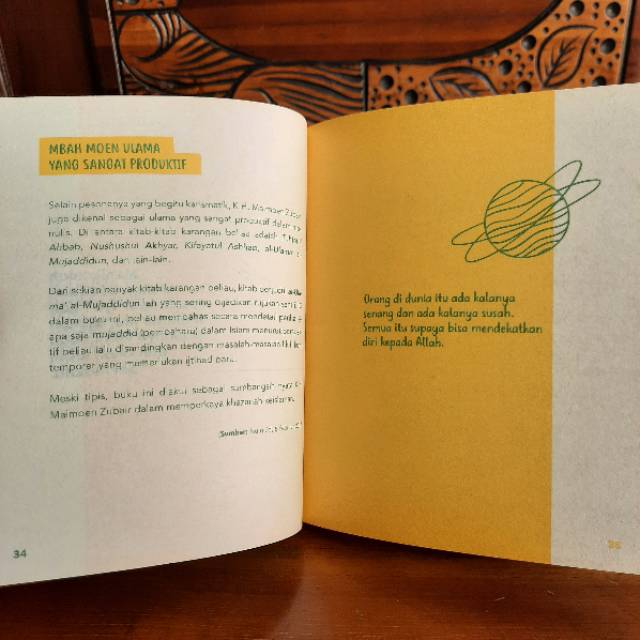 MBAH MOEN ULAMA
YANG SANGAT PRODUKTIF
Selain pesonanya yang begitu karismatik, K.H. Maimoen
juga dikenal sebagai ulama yang sangat produktif dalam
nulis. Di antara kitab-kitab karangan beliau adalah
Ahbab, Nushushul Akhyar, Kifayatul Ashhab, al-Ulama
Mujaddidun, dan lain-lain.
Dari sekian banyak kitab karangan beliau, kitab berjudul
ma' al-Mujaddidun lah yang sering dijadikan rujukan
dalam buku ini, beliau membahas secara mendetail
apa saja mujaddid (pembaharu) dalam Islam menurut
tif beliau lalu disandingkan dengan masalah-masalah
temporer yang memerlukan ijtihad baru.
Meski tipis, buku ini diakui sebagai sumbangan nyata
Maimoen Zubair dalam memperkaya khazanah keislaman.
(Sumber:
34
Orang di dunia itu ada kalanya
senang dan ada kalanya susah.
Semua itu supaya bisa mendekatkan
diri kepada Allah.
35